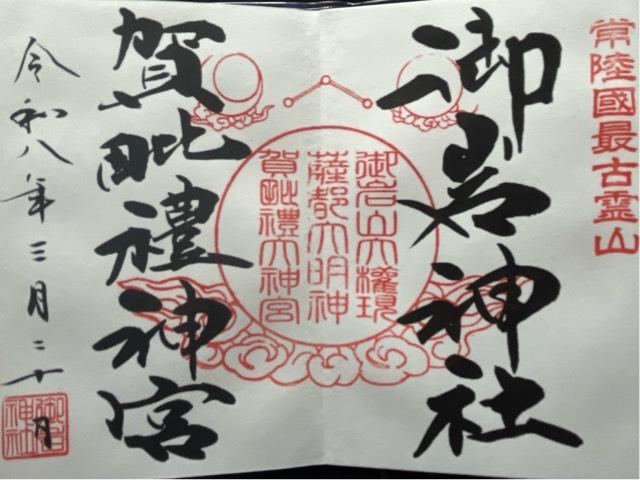 常陸國最古霊山
御岩神社
御岩山大権現
薩都大明神
賀毗禮大神宮
賀毗禮神宮
令和八年三月二十日
御岩神社